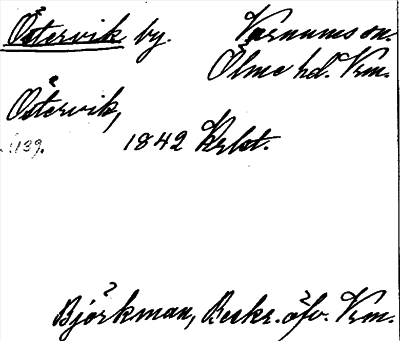 Östervik by. Varnums sn.
Ölme hd. Vrm.
Östervik,
1139. 1842 Krbt.
Björkman, Beskr. öfv. Vrm.